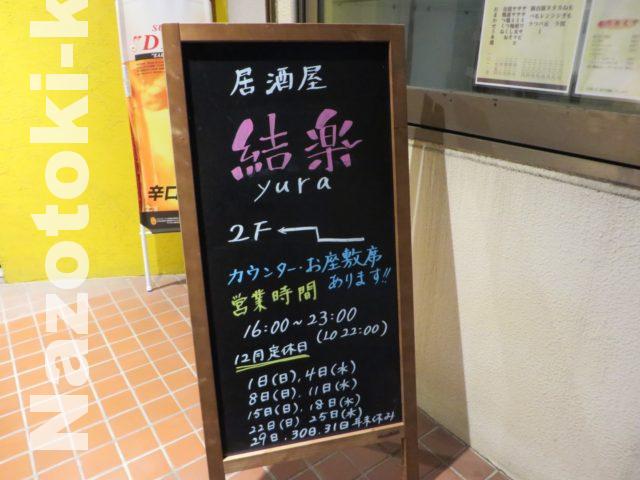 居酒屋
結楽
yura
2F ←
カウンター・お座敷席
あります!!
営業時間
16:00~23:00
(LO 22:00)
12月定休日
1日(日), 4日(水)
8日(日), 11日(水)
15日(日), 18日(水)
22日(日) 25日(水)
29日.30日.31日年末休み
辛口
Nazotoki-k